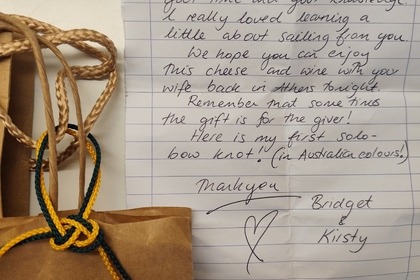 your time and your knowledge.
I really loved learning a
little about sailing from you.
We hope you can enjoy
this cheese and wine with your
wife back in Athens tonight.
Remember that some times
the gift is for the giver!
Here is my first solo-
bow knot! (in Australian colours!)
Thankyou
Bridget
&
Kirsty